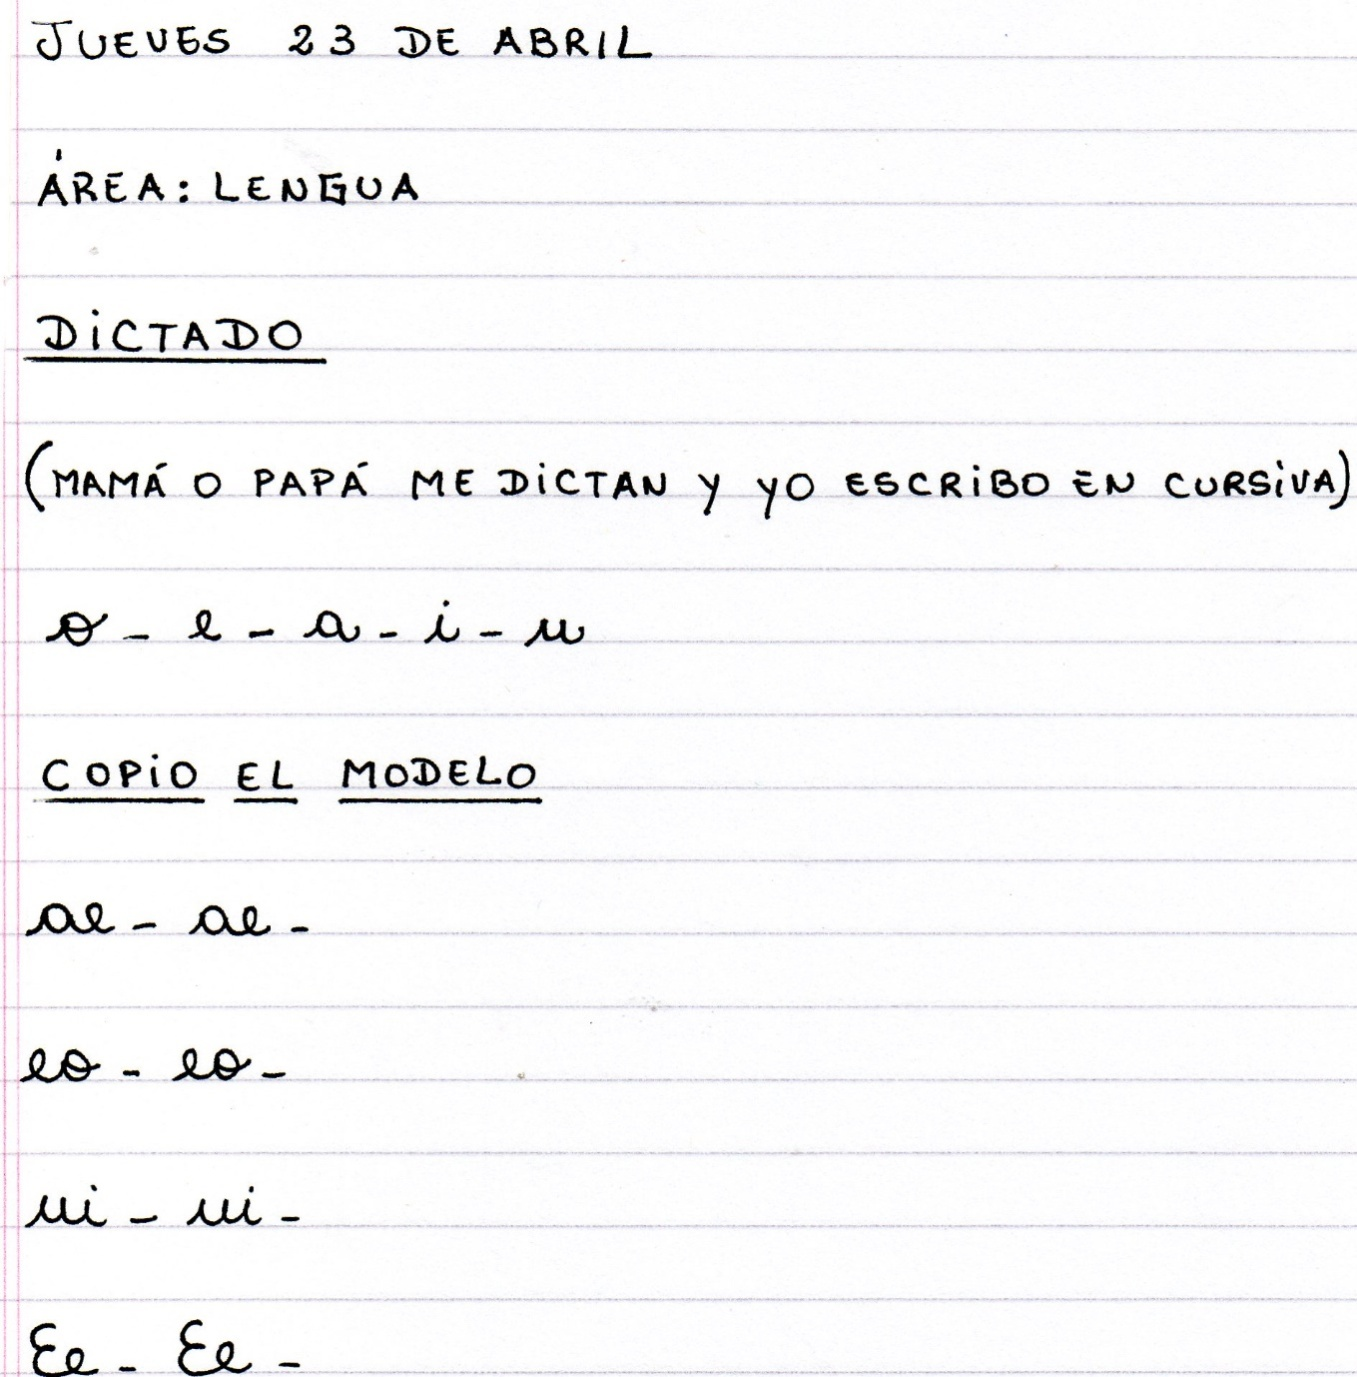 JUEVES 23 DE ABRIL
ÁREA: LENGUA
DiCTADO
(MAMÁ O PAPÁ ME DiCTAN Y YO ESCRiBO EN CURSiVA)
o - e - a - i - u
COPiO EL MODELO
ae - ae -
eo - eo -
ui - ui -
Ee - Ee -